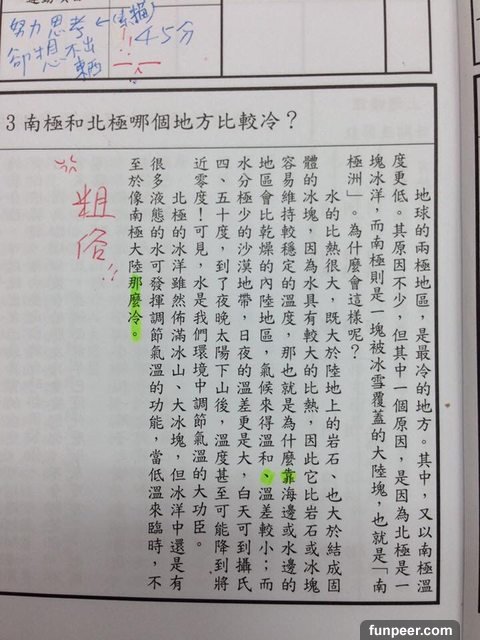 努力思考
卻想不出
東西
!! 45分
3 南極和北極哪個地方比較冷？
地球的兩極地區，是最冷的地方。其中，又以南極溫
度更低。其原因不少，但其中一個原因，是因為北極是一
塊冰洋，而南極則是一塊被冰雪覆蓋的大陸塊，也就是「南
極洲」。為什麼會這樣呢？
水的比熱很大，既大於陸地上的岩石、也大於結成固
體的冰塊，因為水具有較大的比熱，因此它比岩石或冰塊
容易維持較穩定的溫度，那也就是為什麼靠海邊或水邊的
地區會比乾燥的內陸地區，氣候來得溫和、溫差較小；而
水分極少的沙漠地帶，日夜的溫差更是大，白天可到攝氏
四、五十度，到了夜晚太陽下山後，溫度甚至可能降到將
近零度！可見，水是我們環境中調節氣溫的大功臣。
北極的冰洋雖然佈滿冰山、大冰塊，但冰洋中還是有
很多液態的水可發揮調節氣溫的功能，當低溫來臨時，不
至於像南極大陸那麼冷。
粗俗!!
funpeer.com